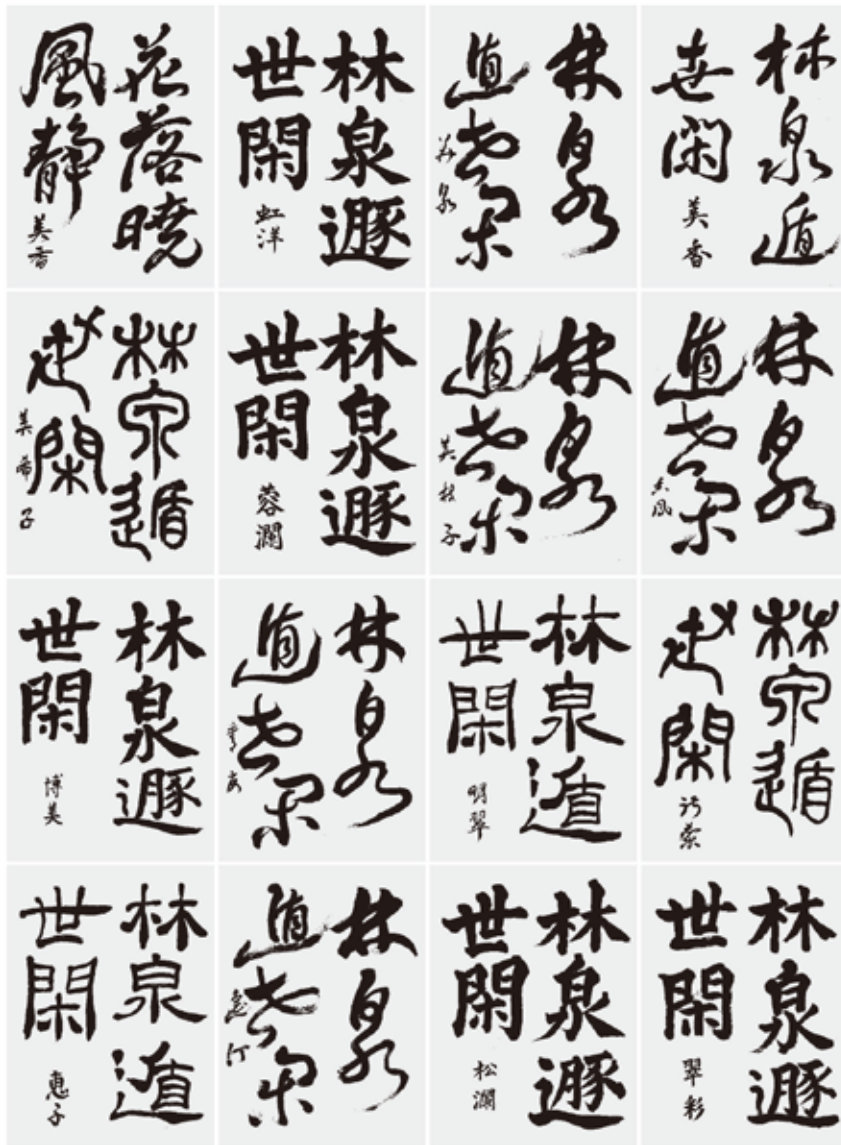 花落曉
風静
美香
林泉遯
世閑
虹洋
林泉
遁世閑
林泉遁
世閑
美香
林泉遁
世閑
美希子
林泉遯
世閑
蓉瀾
林泉
遁世閑
美枝子
林泉
遁世閑
林泉遯
世閑
博美
林泉
遁世閑
林泉遁
世閑
明翠
林泉遁
世閑
林泉遁
世閑
惠子
林泉
遁世閑
林泉遯
世閑
松瀾
林泉遯
世閑
翠彩